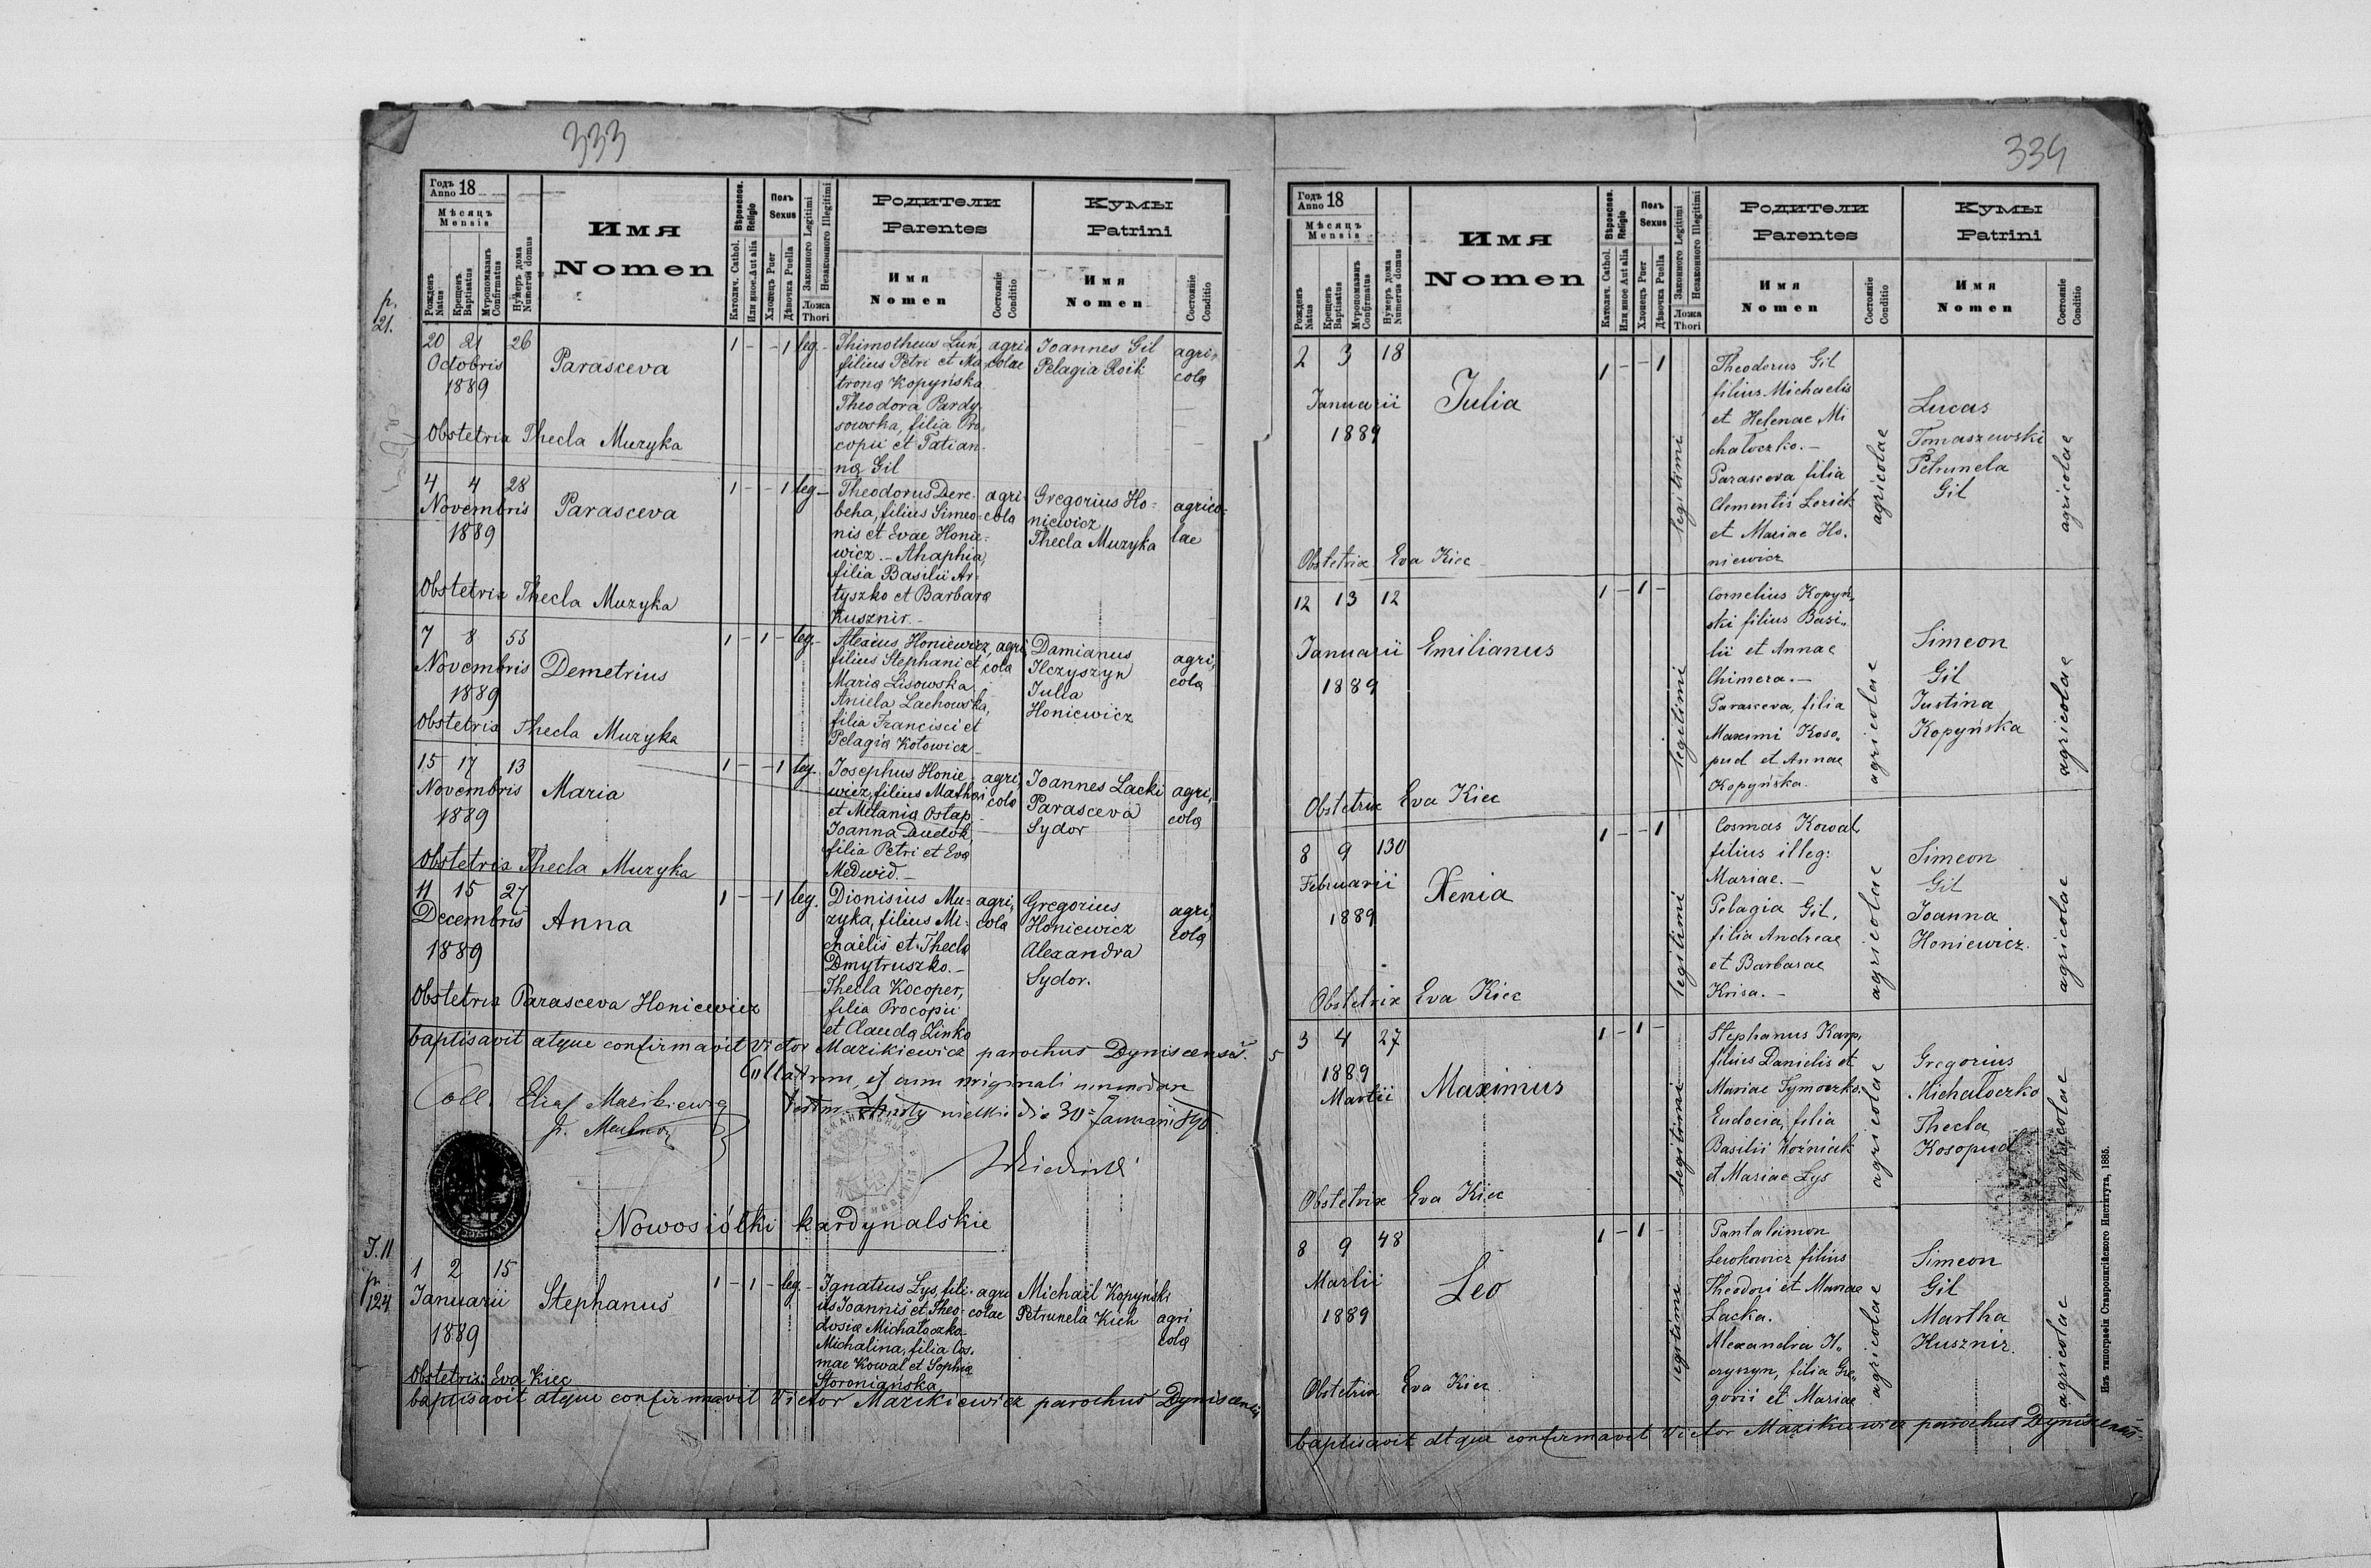 333
Годъ 18
Anno
Мѣсяцъ
Mensis
Рожденъ
Natus
Крещенъ
Baptisatus
Мѵропомазанъ
Confirmatus
Нумеръ дома
Numerus domus
Имя
Nomen
Вѣроиспов.
Religio
Католич. Cathol.
Или иное. Aut alia
Полъ
Sexus
Хлопецъ Puer
Дѣвочка Puella
Законного Legitimi
Незаконного Illegitimi
Ложа
Thori
Родители
Parentes
Имя
Nomen
Состояніе
Conditio
Кумы
Patrini
Имя
Nomen
Состояніе
Conditio
p.
21.
20 21 26
Octobris
1889
Parasceva
1 - - 1 leg. -
Thimotheus Lun,
filius Petri et Ma
trona Kopyńska
Theodora Pardy-
sowska, filia Pro-
copii et Tatian-
na Gil
agri-
colae
Joannes Gil
Pelagia Roik
agri-
cola
Obstetrix Thecla Muzyka
4 4 28
Novembris
1889
Parasceva
1 - - 1 leg -
Theodorus Dere-
beha, filius Simeo-
nis et Evae Honie-
wicz. - Ahaphia,
filia Basilii Ar-
tyszko et Barbara
Kusznir. -
agri-
cola
Gregorius Ho-
niewicz
Thecla Muzyka
agrico-
lae
Obstetrix Thecla Muzyka
7 8 53
Novembris
1889
Demetrius
1 - 1 - leg. -
Alexius Honiewicz,
filius Stephani et
Maria Lisowska.
Aniela Lachowska,
filia Francisci et
Pelagia Kotowicz
agri,
cola
Damianus
Ilczyszyn
Julia
Honiewicz
agri,
cola
Obstetrix Thecla Muzyka
15 17 13
Novembris
1889
Maria
1 - - 1 leg.
Josephus Honie-
wicz, filius Mathei
et Melania Ostap
Joanna Dudok,
filia Petri et Eva
Medwid. -
agri,
cola
Joannes Lacki
Parasceva
Sydor
agri,
cola
Obstetrix Thecla Muzyka
11 15 27
Decembris
1889
Anna
1 - - 1 leg.
Dionisius Mu-
zyka, filius Mi-
chaelis et Thecla
Dmytruszko. -
Thecla Kocoper,
filia Procopii
et Clauda Zinko
agri,
cola
Gregorius
Honiewicz
Alexandra
Sydor.
agri,
cola
Obstetrix Parasceva Honiewicz
baptisavit atque confirmavit Victor Mazikiewicz parochus Dyniscensis.
Collatum et cum originali
Coll.
die 30 Januarii 890
Nowosiółki kardynalskie
T. II
p.
124
1 2 15
Januarii
1889
Stephanus
1 - 1 - leg. -
Ignatius Lys, fili-
us Joannis et Theo-
dosia Michałoczko
Michalina, filia Cos-
mae Kowal et Sophia
Storoniańska
agri
colae
Michail Kopyński
Petrunela Kich
agri
cola
Obstetrix: Eva Kiec
baptisavit atque confirmavit Victor Mazikiewicz parochus Dyniscensis
334
Годъ 18
Anno
Мѣсяцъ
Mensis
Рожденъ
Natus
Крещенъ
Baptisatus
Мѵропомазанъ
Confirmatus
Нумеръ дома
Numerus domus
Имя
Nomen
Вѣроиспов.
Religio
Католич. Cathol.
Или иное Aut alia
Полъ
Sexus
Хлопецъ Puer
Дѣвочка Puella
Законного Legitimi
Незаконного Illegitimi
Ложа
Thori
Родители
Parentes
Имя
Nomen
Состояніе
Conditio
Кумы
Patrini
Имя
Nomen
Состояніе
Conditio
2 3 18
Januarii
1889
Julia
1 - - 1
legitimi
Theodorus Gil
filius Michaelis
et Helenae Mi
chałoczko. -
Parasceva filia
Clementis Lozick
et Mariae Ho-
niewicz
agricolae
Lucas
Tomaszewski
Petrunela
Gil
agricolae
Obstetrix Eva Kiec
12 13 12
Januarii
1889
Emilianus
1 - 1 -
legitimi
Cornelius Kopyń-
ski filius Basi-
lii et Annae
Chimera. -
Parasceva, filia
Maximi Koso-
pud et Annae
Kopyńska.
agricolae
Simeon
Gil
Justina
Kopyńska
agricolae
Obstetrix Eva Kiec
8 9 130
Februarii
1889
Xenia
1 - - 1
legitimi
Cosmas Kowal,
filius illeg:
Mariae. -
Pelagia Gil,
filia Andreae
et Barbarae
Krisa. -
agricolae
Simeon
Gil
Joanna
Honiewicz.
agricolae
Obstetrix Eva Kiec
3 4 27
1889
Martii
Maximus
1 - 1 -
legitimi
Stephanus Karp,
filius Danielis et
Mariae Tymoczko.
Eudocia, filia
Basilii Woźniak
et Mariae Lys
agricolae
Gregorius
Michałoczko
Thecla
Kosopud
agricolae
Obstetrix Eva Kiec
8 9 48
Martii
1889
Leo
1 - 1 -
legitimi
Pantaleimon
Lewkowicz filius
Theodori et Mariae
Lacka.
Alexandra Il-
czyszyn, filia Gre-
gorii et Mariae
agricolae
Simeon
Gil
Martha
Kusznir.
agricolae
Obstetrix Eva Kiec
baptisavit atque confirmavit Victor Mazikiewicz parochus Dyniscensis
Изъ типографіи Ставропигійского Института, 1885.